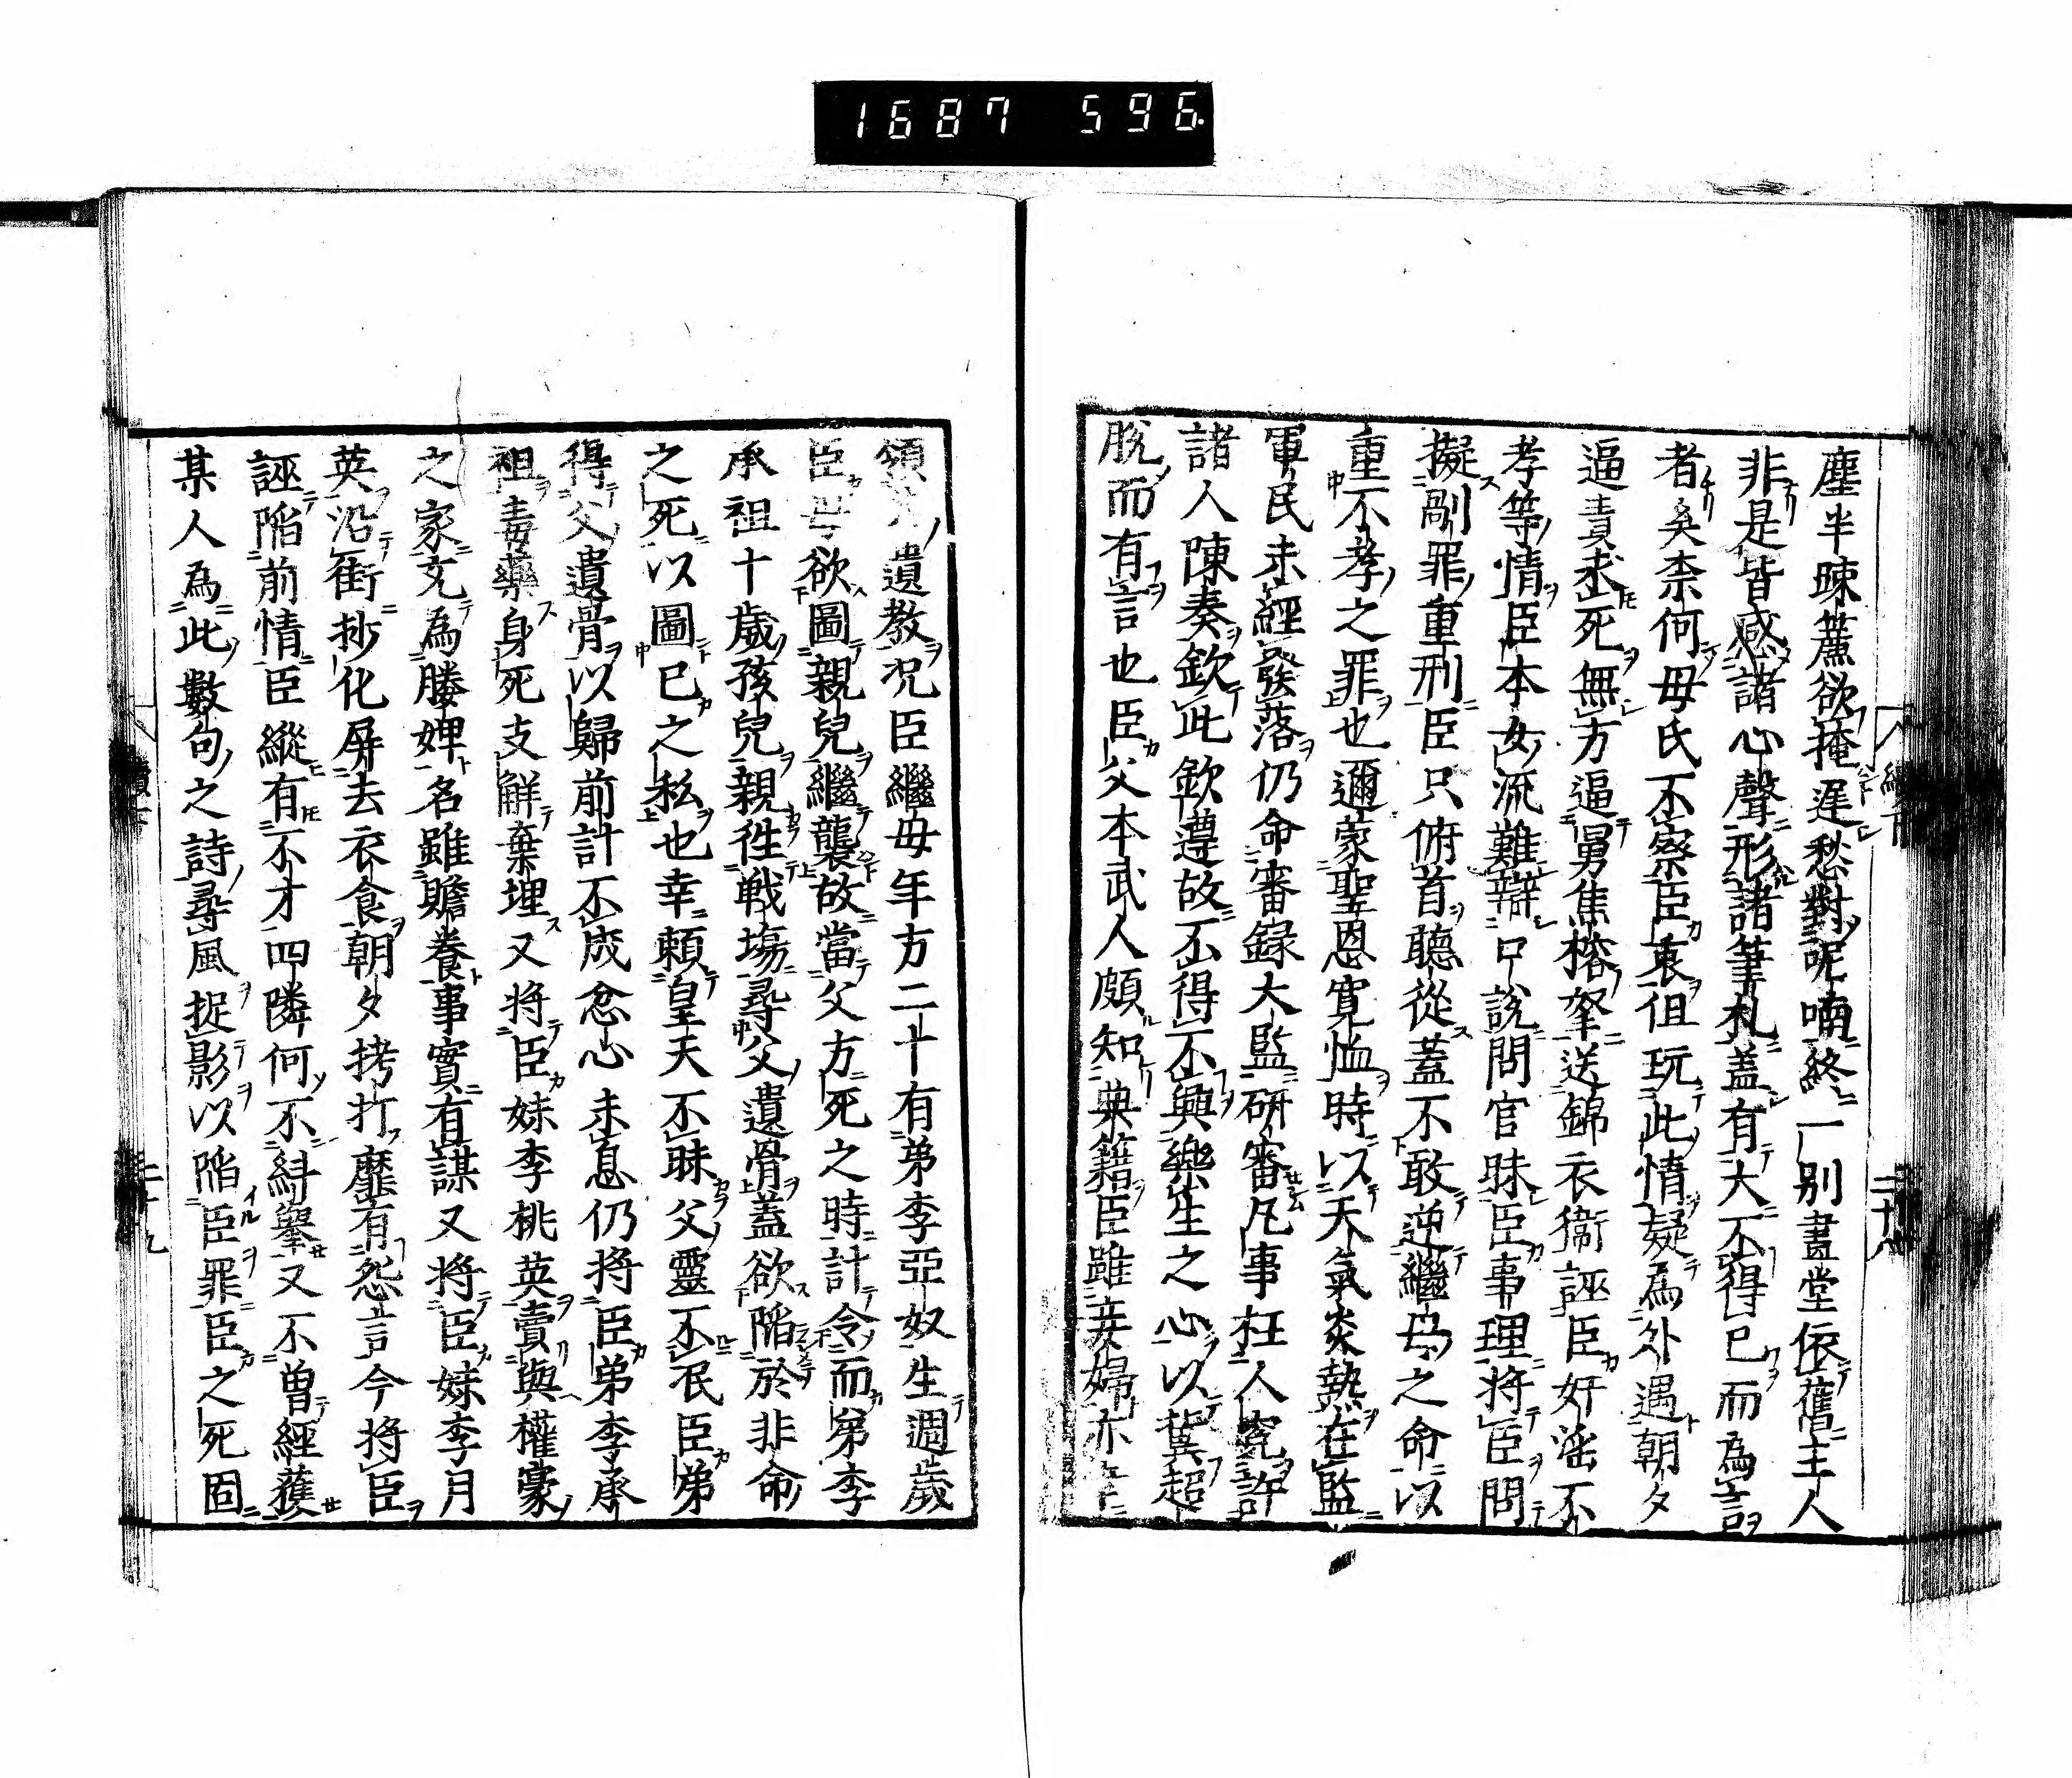 1687 596
塵半疎簾欲掩遲愁對呢喃終一別畫堂依舊主人
非是皆感諸心聲形諸筆札盖有大不得已而為言
者矣柰何母氏不察臣衷徂玩此情疑為外遇朝夕
逼責求死無方逼舅焦榕拏送錦衣衞誣臣奸滛不
孝等情臣本女流難辯口說問官昧臣事理将臣問
擬剮罪重刑臣只俯首聽從蓋不敢逆繼母之命以
重不孝之罪也邇蒙聖恩寛恤時以天氣炎熱在監
軍民未經發落仍命審録大監研審凡事枉人寃許
諸人陳奏欽此欽遵故不得不興樂生之心以冀超
脫而有言也臣父本武人頗知典籍臣雖妾婦亦
領遺教况臣繼毋年方二十有弟李亞奴生週歲
臣母欲圖親兒繼襲故當父方死之時計令而弟李
承祖十歲孩兒親徃戦塲尋父遺骨蓋欲陥於非命
之死以圖已之私也幸頼皇天不昧父靈不泯臣弟
得父遺骨以歸前計不成忿心未息仍将臣弟李承
祖毒藥身死支解棄埋又将臣妹李桃英賣與權豪
之家文為媵婢名雖贍養事實有謀又将臣妹李月
英沿街抄化屏去衣食朝夕拷打靡有怨言今将臣
誣陥前情臣縱有不才四隣何不糾舉又不曽經獲
某人為此數句之詩尋風捉影以陥臣罪臣之死固
二十八
二十九